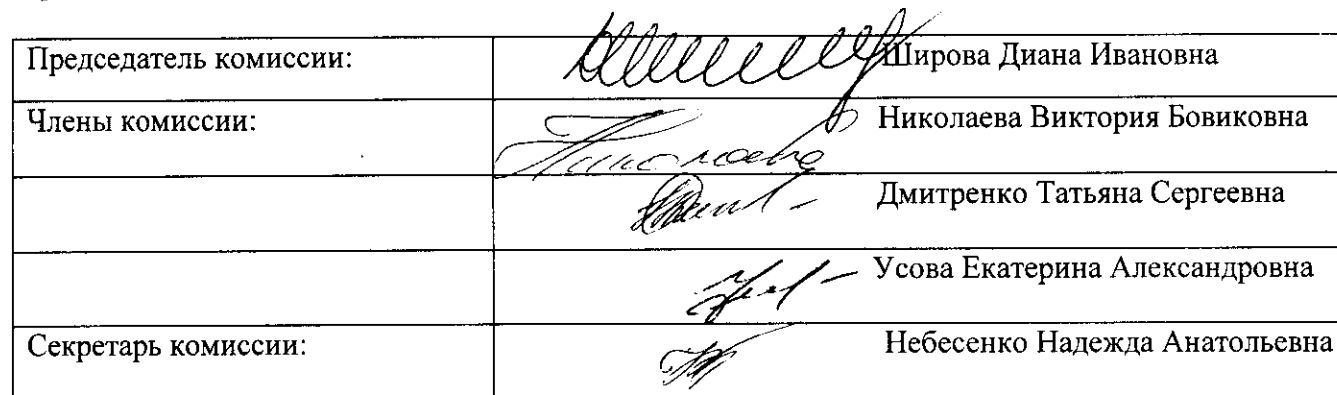 Председатель комиссии: Широва Диана Ивановна
Члены комиссии: Николаева Николаева Виктория Бовиковна
Дмитренко Татьяна Сергеевна
Усова Екатерина Александровна
Секретарь комиссии: Небесенко Надежда Анатольевна